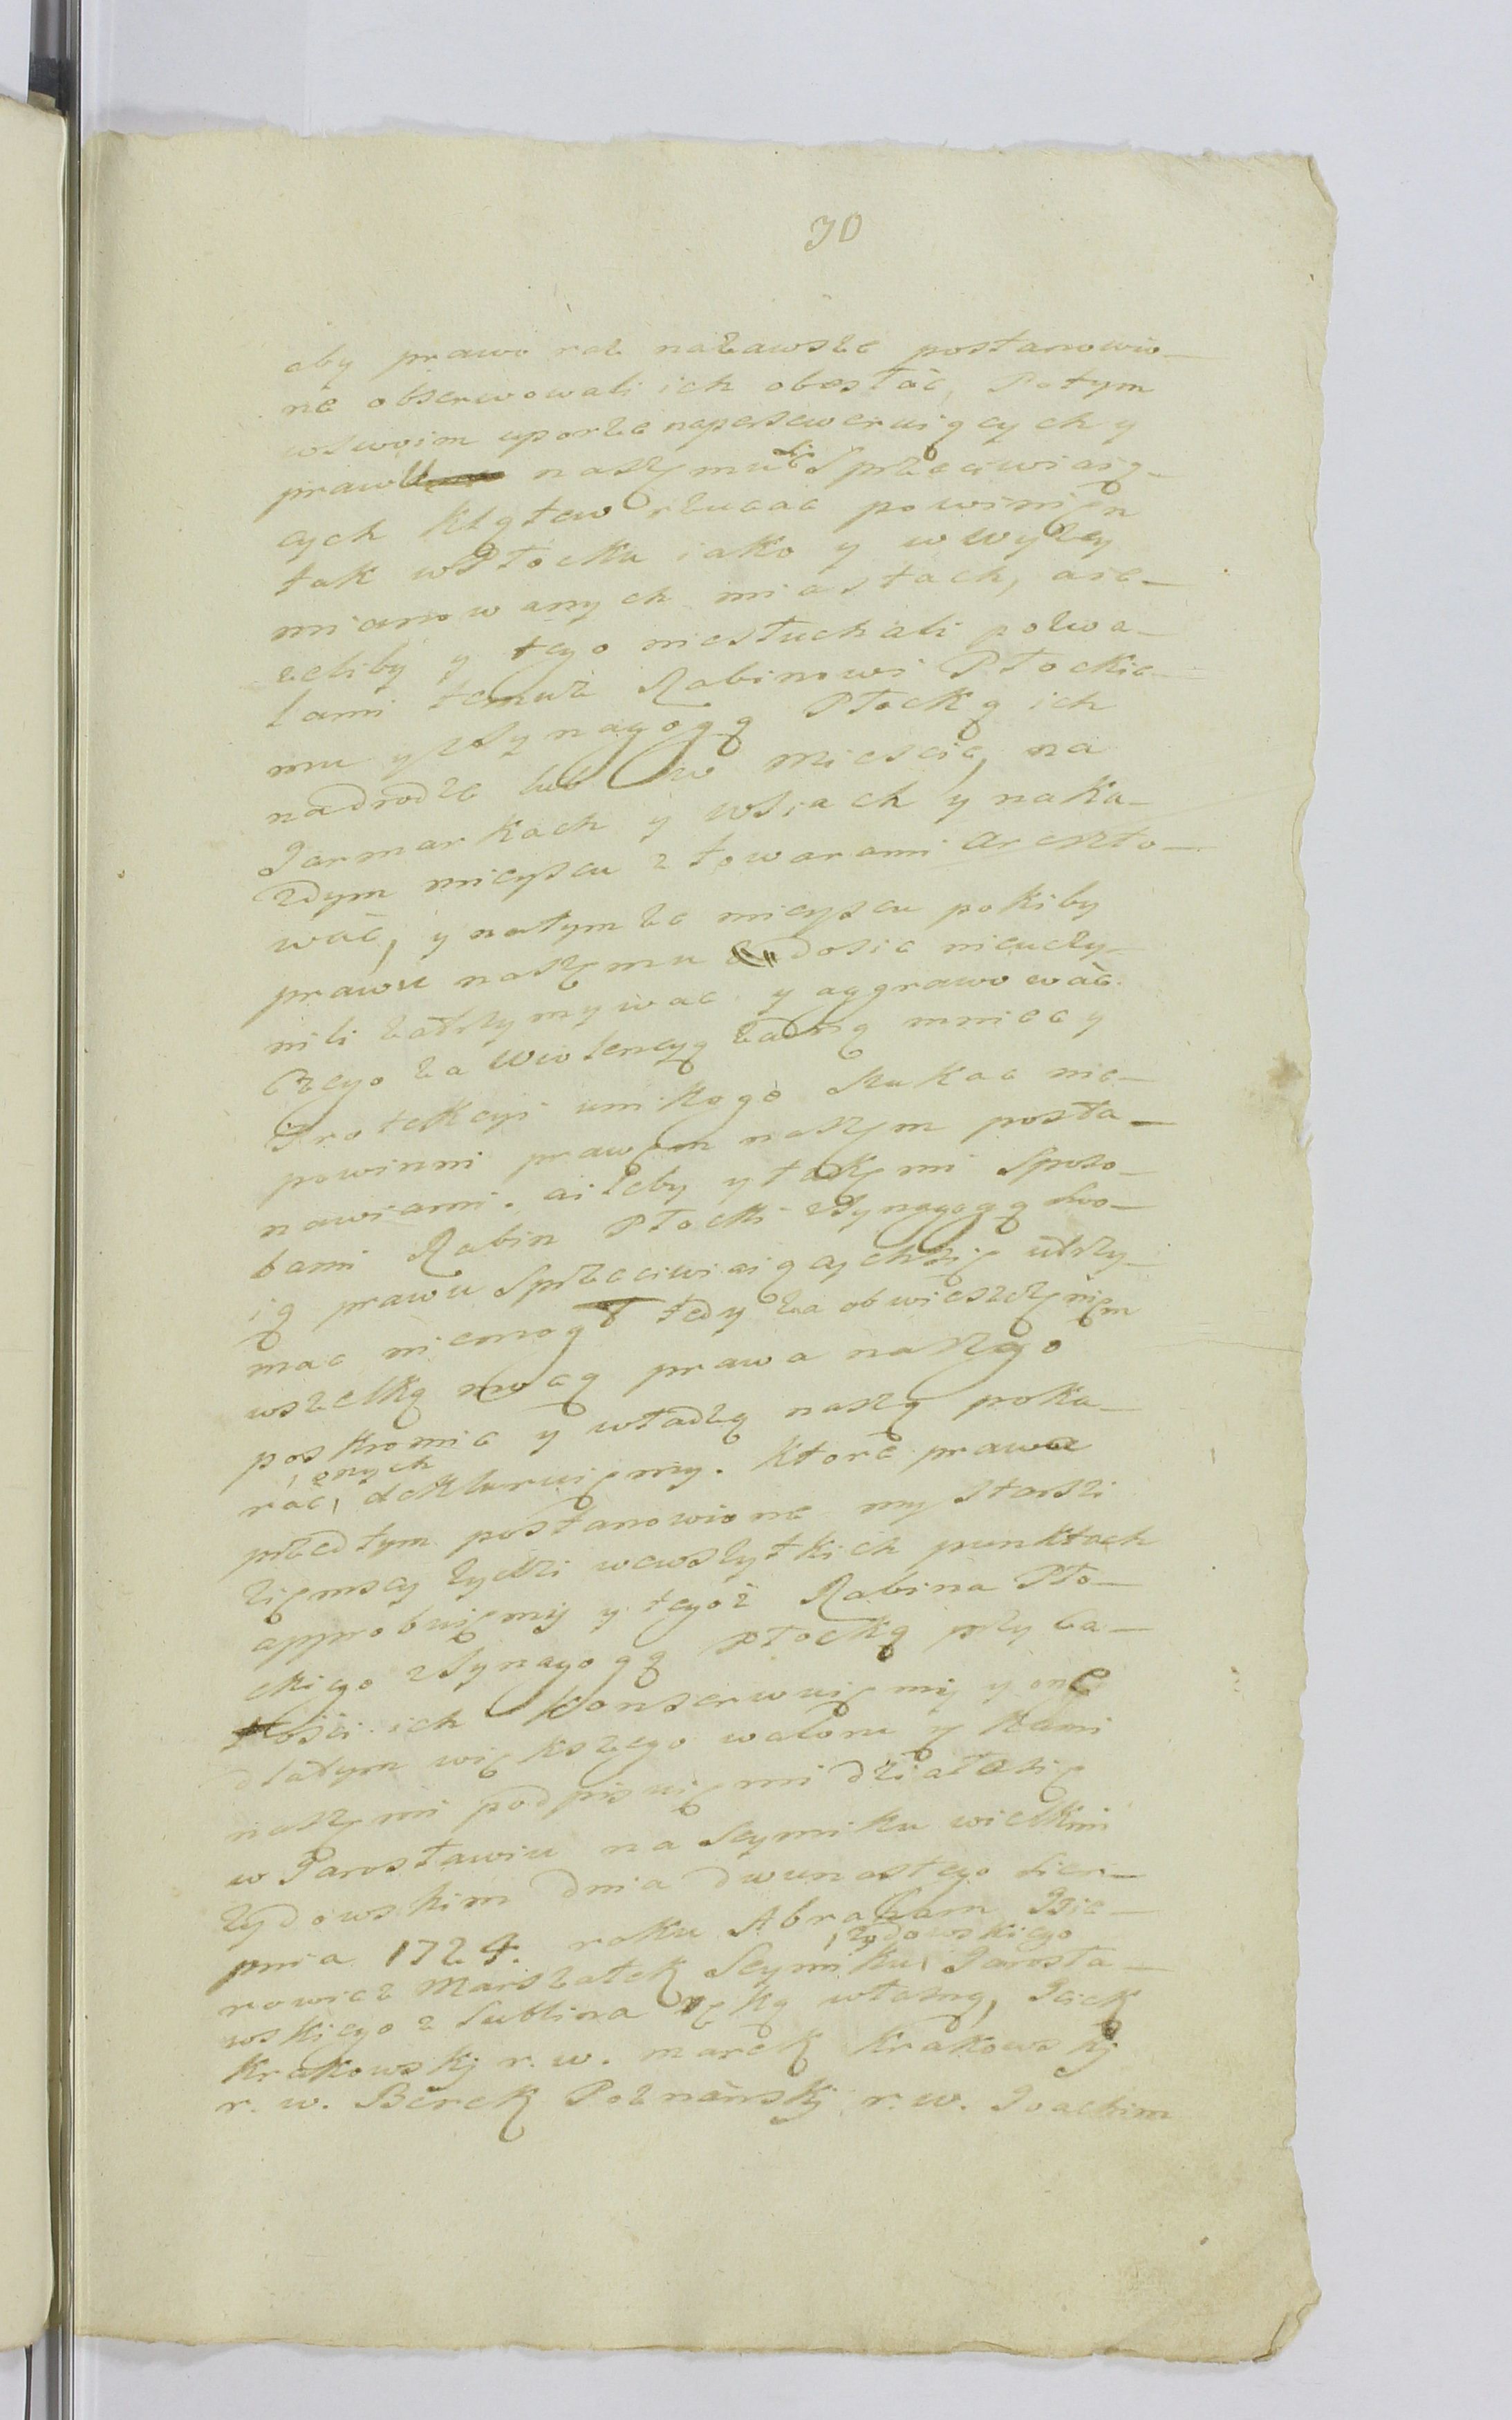 30
aby prawo raz nazawsze postanowio-
ne obserwowali ich obesłać, Potym
wswoim uporze naperseweruiących y
prawu naszemu Sprzeciwiaią-
cych klątew rzucac powinien
tak wPłocku iako y wwyzey
mianowanych miastach, aie-
zeliby y tego niesłuchali pozwa-
lami temuz Rabinowi Płockie-
mu yzSynagogą Płocką ich
nadrodze lub w Miescie, na
Jarmarkach y wsiach y naka-
zdym mieyscu z towarami areszto-
wać, y natymze mieyscu pokiby
prawu naszemu dosic nieuczy-
nili zatrzymywac y aggrawowac.
Czego za Wiolencyą zadną mniec y
Protekcyi unikogo szukac nie-
powinni prawem naszem posta-
nawiami. aizeby ytakiemi Sposo-
bami Rabin Płocki zSynagogą swo-
ią prawu Sprzeciwiaiącychsię utrzy-
mac niemogł tedy za obwieszczeniem
wszelką mocą prawa naszego
poskromic y władzą naszą poka-
rać, onych deklaruiemy. Ktore prawa
przedtym postanowione my Starsi
ziemscy zydzi wewszytkich punktach
approbuiemy y tegoz Rabina Pło-
ckiego zSynagogą Płocką przy ca-
łości ich konserwuiemy y one
dlatym większego waloru y Rękami
naszemi podpisuiemi działosię
w Jarosławiu na Seymiku wielkim
zydowskim dnia dwunastego Sier-
pnia 1724. roku Abraham Isie-
rowicz Marszałek Seymiku zydowskiego Jarosła-
wskiego z Lublina ręką własną, Icick
Krakowskj r. w. marek Krakowskj
r. w. Berek Poznanskj r. w. Joachim